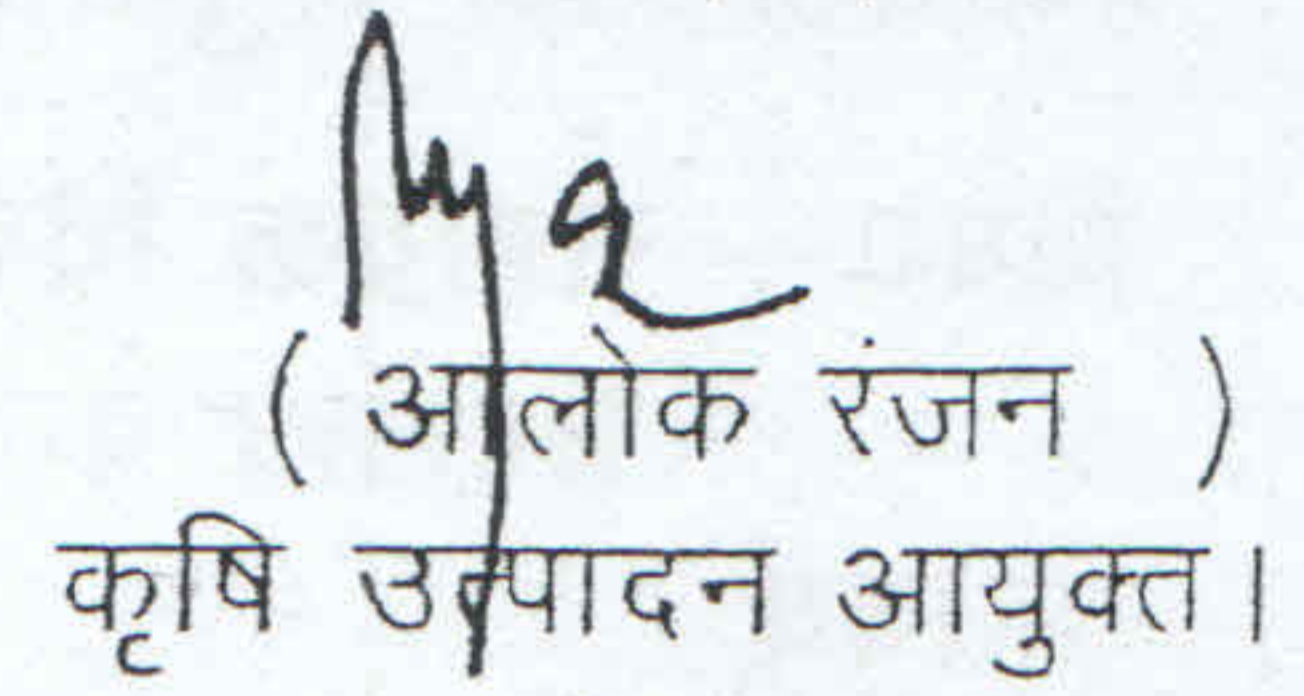 ( आलोक रंजन )
कृषि उत्पादन आयुक्त।